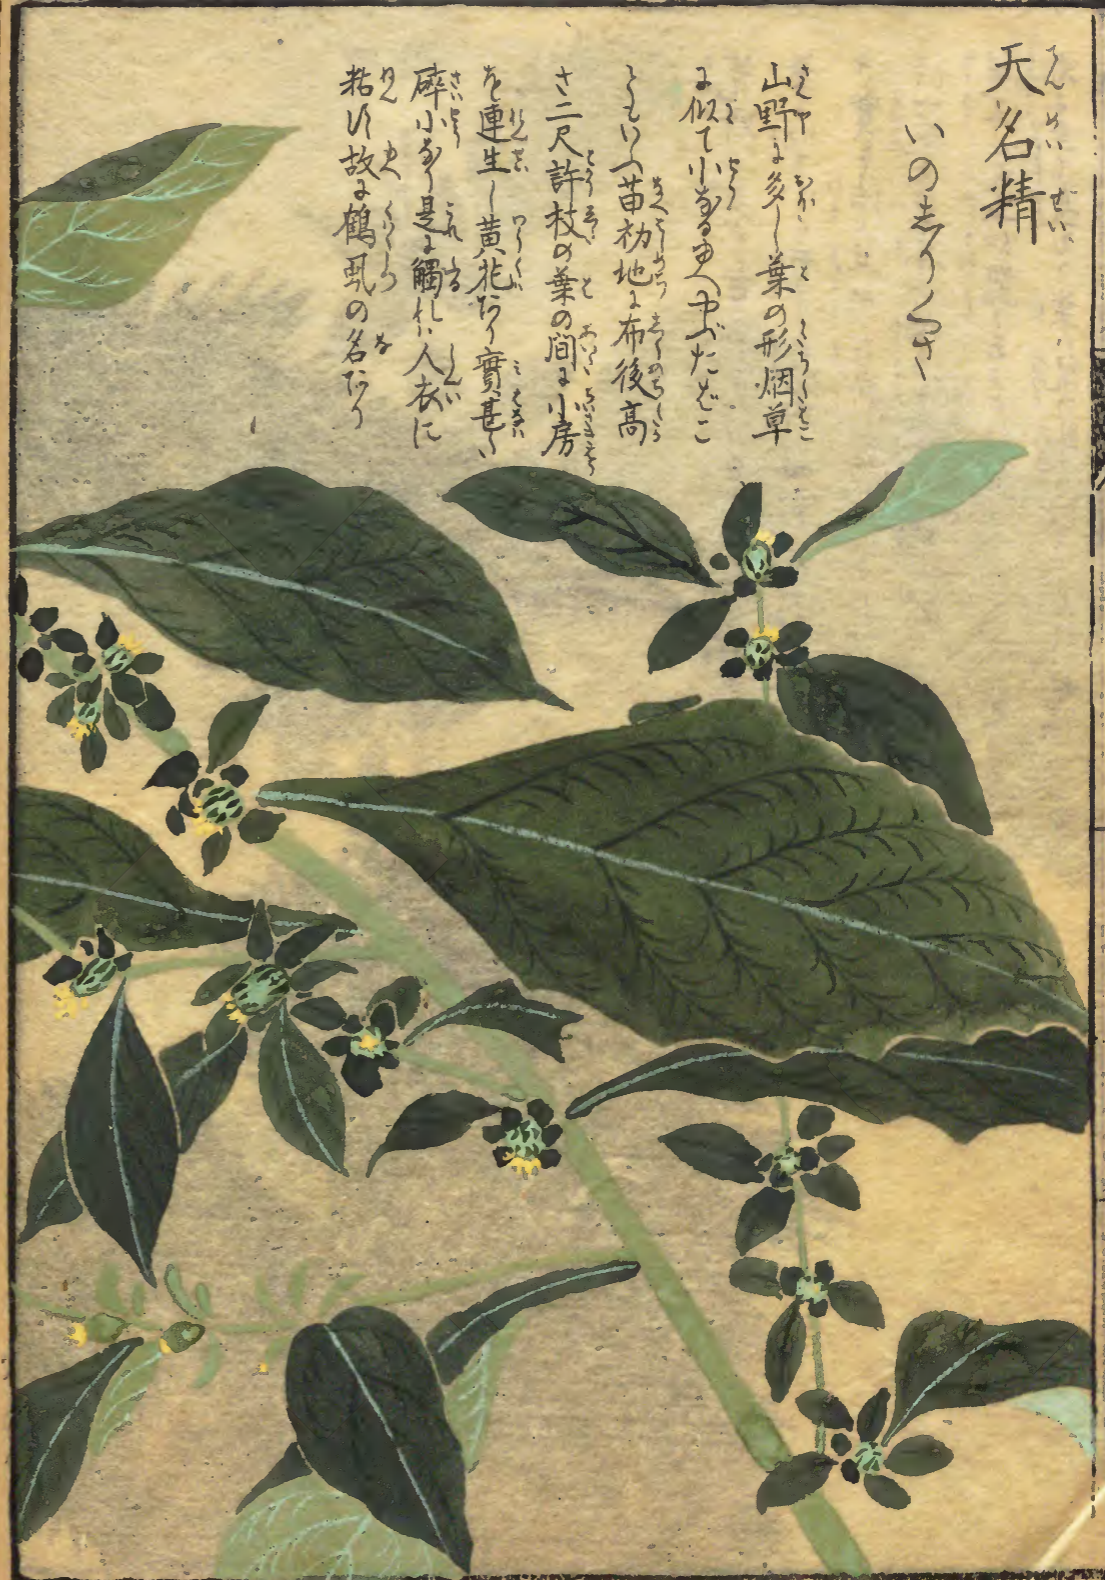 天名精
いのしりくさ
山野に多し葉の形烟草
に似て小なるゆへやぶたばこ
ともいふ苗初地に布後高
さ二尺許枝の葉の間に小房
を連生し黄花なり實甚
碎小なり是に觸れハ人衣に
粘す故に鶴虱の名あり